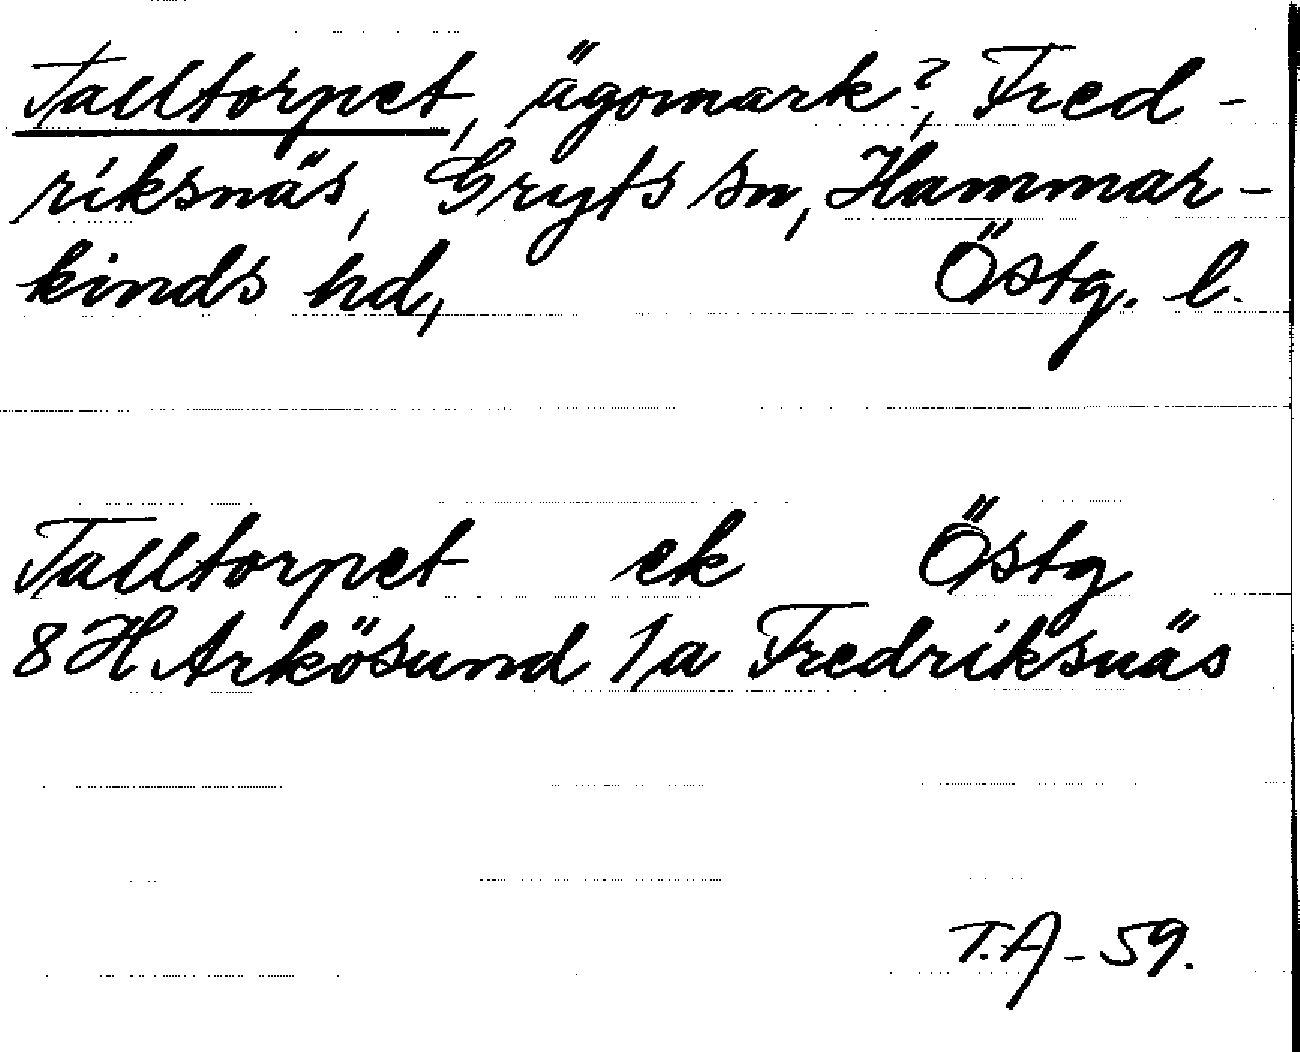 Talltorpet, ägomark?, Fred-
riksnäs, Gryts sn, Hammar-
kinds hd, Östg. l.
Talltorpet ek Östg
8 H Arkösund 1a Fredriksnäs
T.A-59.